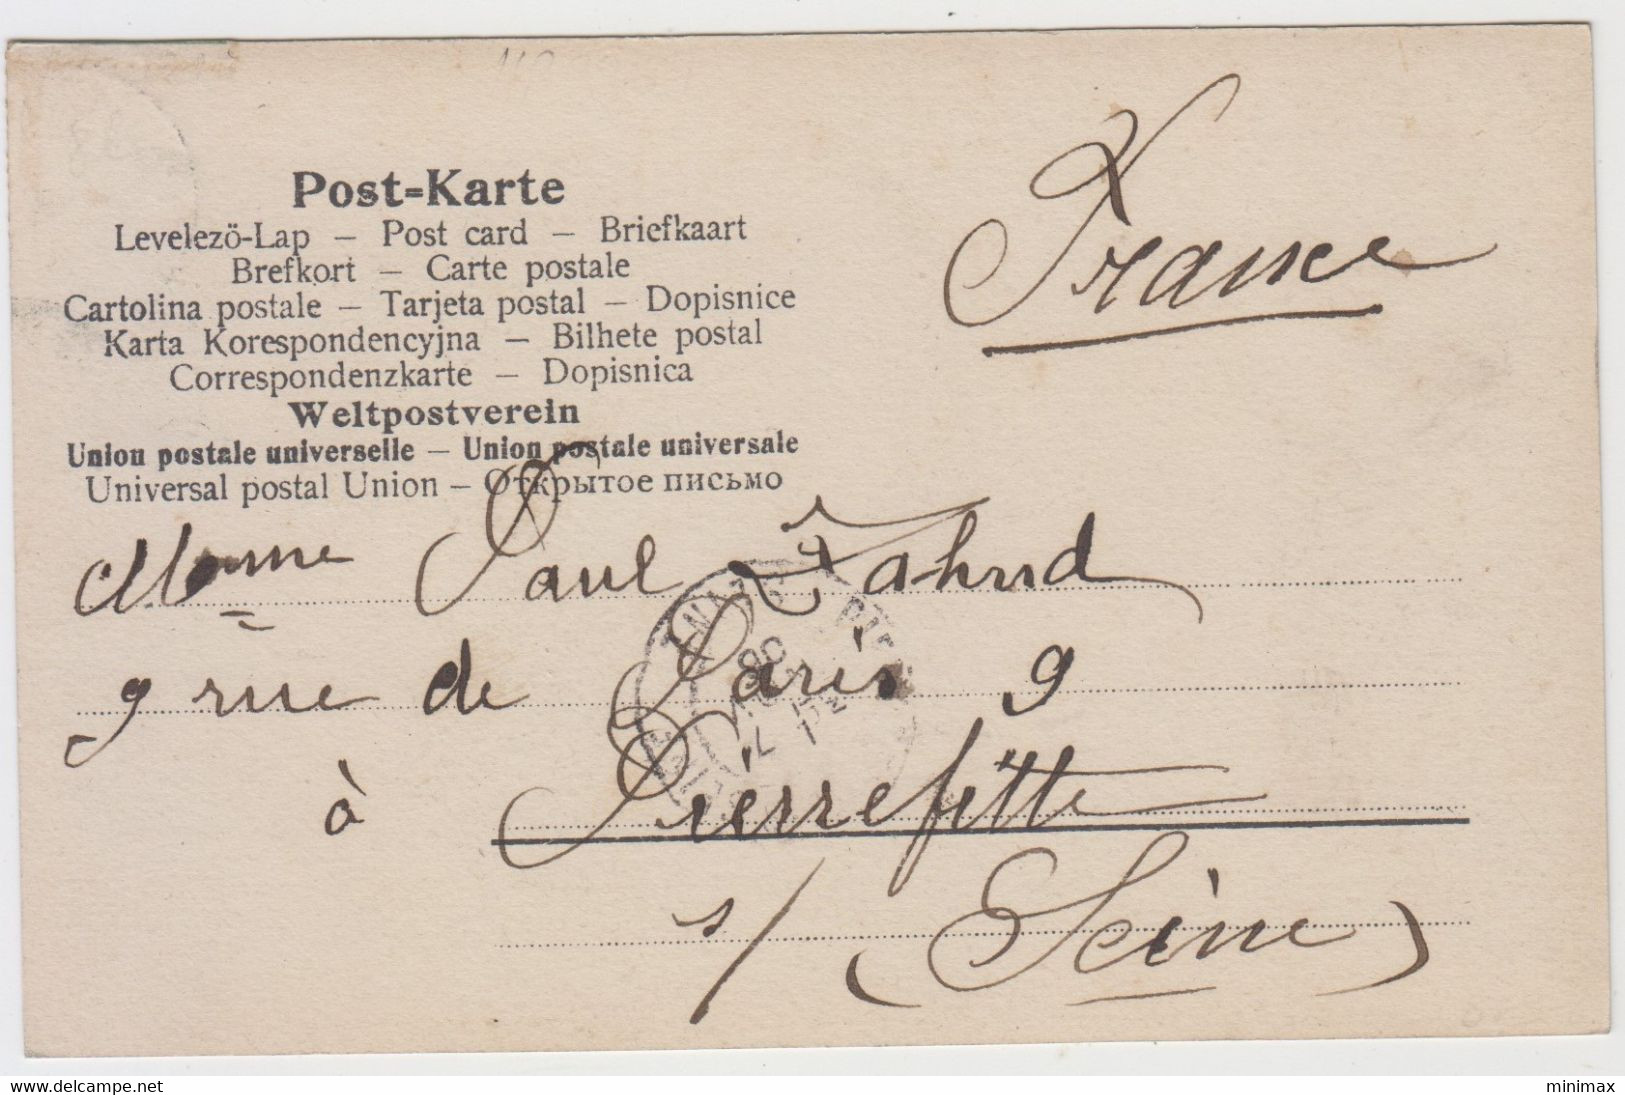 Post-Karte
Levelezö-Lap – Post card – Briefkaart
Brefkort – Carte postale
Cartolina postale – Tarjeta postal – Dopisnice
Karta Korespondencyjna – Bilhete postal
Correspondenzkarte – Dopisnica
Weltpostverein
Union postale universelle – Union postale universale
Universal postal Union – Открытое письмо
France
Mme Paul Zahnd
9 rue de Paris 9
à Pierrefitte
s/ (Seine)
delcampe.net
minimax